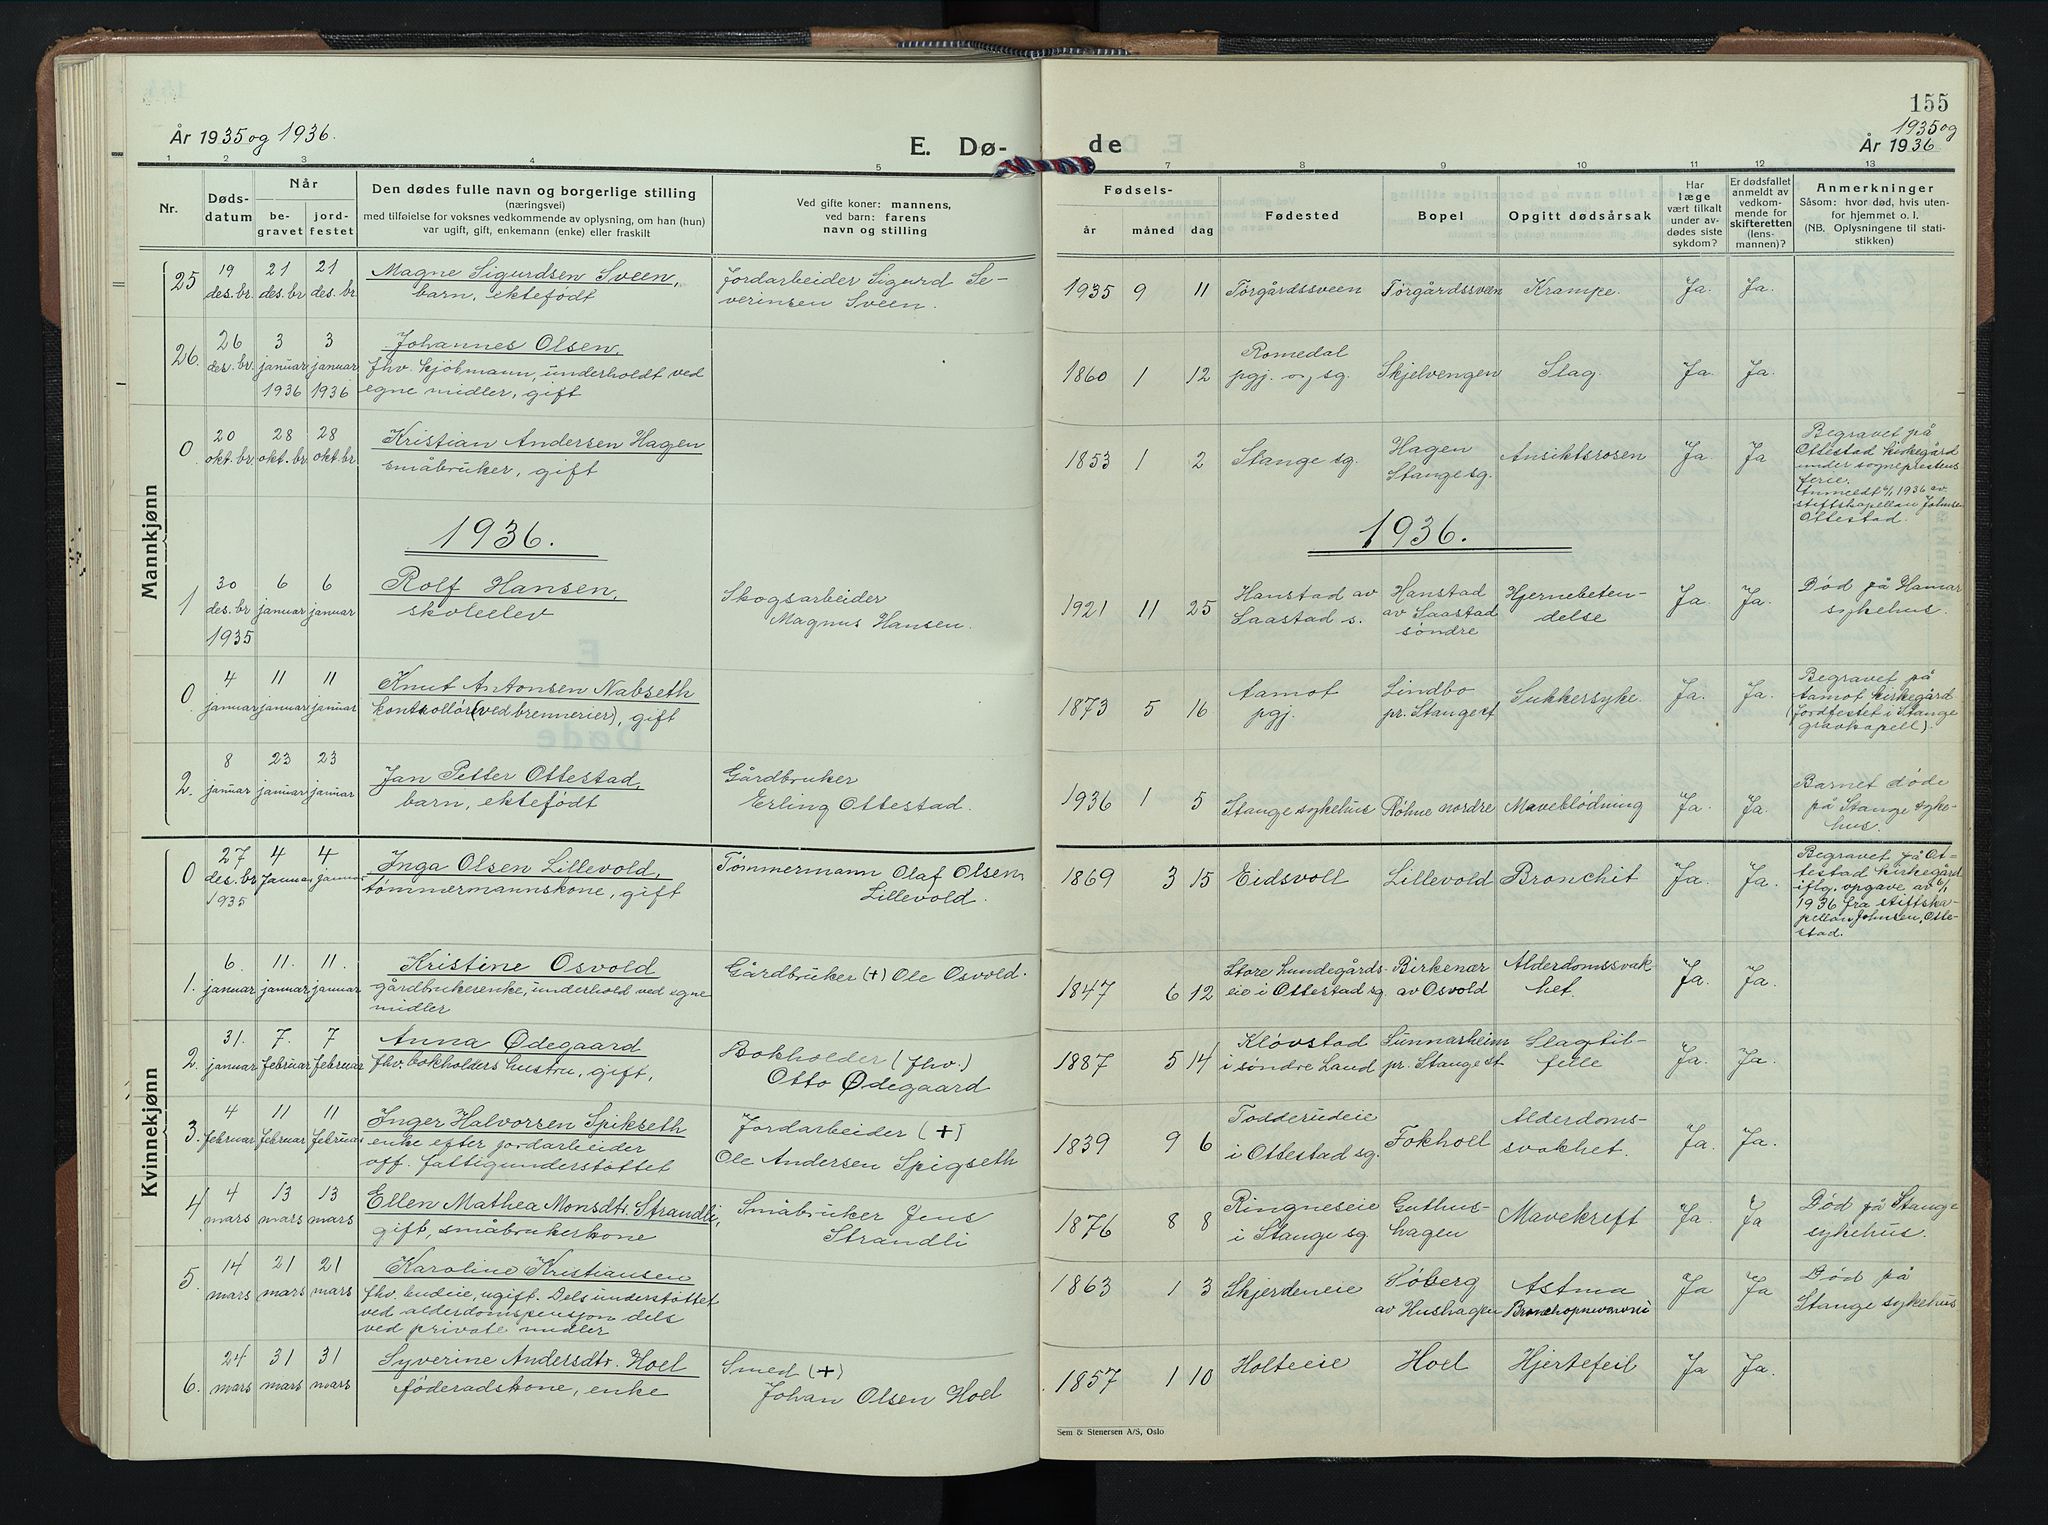 155
År 1935 og 1936.
E. Dø-
de
1935 og
År 1936.
1 2 3 4 5 7 8 9 10 11 12 13
Nr.
Døds-
datum
Når
be-
gravet
jord-
festet
Den dødes fulle navn og borgerlige stilling
(næringsvei)
med tilføielse for voksnes vedkommende av oplysning, om han (hun)
var ugift, gift, enkemann (enke) eller fraskilt
Ved gifte koner: mannens,
ved barn: farens
navn og stilling
Fødsels-
år måned dag
Fødested
Bopel
Opgitt dødsårsak
Har
læge
vært tilkalt
under av-
dødes siste
sykdom?
Er dødsfallet
anmeldt av
vedkom-
mende for
skifteretten
(lens-
mannen)?
Anmerkninger
Såsom: hvor død, hvis uten-
for hjemmet o. l.
(NB. Oplysningene til stati-
stikken)
Mannkjønn
25 19 des.br 21 des.br 21 des.br
Magne Sigurdsen Sveen,
barn, ektefødt
Jordarbeider Sigurd Se-
verinsen Sveen.
1935 9 11 Tørgårdssveen Tørgårdssveen Krampe. Ja. Ja.
26. 26 des.br. 3 januar 1936 3 januar 1936
Johannes Olsen,
fhv. kjøbmann, underholdt ved
egne midler, gift
1860 1 12
Romedal
pgj. og sg.
Skjelvengen Slag. Ja. Ja.
0 20 okt.br 28 okt.br 28 okt.br
Kristian Andersen Hagen
småbruker, gift
1853 1 2 Stange sg.
Hagen
Stange sg.
Ansiktsrosen Ja. Ja
Begravet på
Ottestad kirkegård
under sogneprestens
ferie.
Anmeldt 6/1 1936 av
stiftskapellan Johnsen
Ottestad.
1936.
1936.
1 30 des.br 1935 6 januar 6 januar
Rolf Hansen,
skoleelev
Skogsarbeider
Magnus Hansen.
1921 11 25
Hanstad av
Saastad s.
Hanstad
av Saastad
søndre
Hjernebeten-
delse
Ja. Ja.
Død på Hamar
sykehus.
0 4 januar 11 januar 11 januar
Knut Antonsen Nabseth
kontrollør (ved brennerier), gift
1873 5 16
Aamot
pgj.
Lindbo
pr. Stange st
Sukkersyke. Ja. Ja.
Begravet på
Aamot kirkegård
(jordfestet i Stange
gravkapell).
2. 8 januar 23 januar 23 januar
Jan Petter Ottestad,
barn, ektefødt
Gårdbruker
Erling Ottestad.
1936 1 5 Stange sykehus Røhne nordre Maveblødning Ja. Ja.
Barnet døde
på Stange syke-
hus.
Kvinnekjønn
0 27 des.br 1935 4 januar 4 januar
Inga Olsen Lillevold,
tømmermannskone, gift
Tømmermann Olaf Olsen
Lillevold.
1869 3 15 Eidsvoll Lillevold Bronchit Ja. Ja.
Begravet på Ot-
testad kirkegård
iflg. opgave av 6/1
1936 fra stiftska-
pellan Johnsen, Otte-
stad.
1. 6 januar 11. januar 11. januar
Kristine Osvold
gårdbrukerenke, underhold ved egne
midler
Gårdbruker (+) Ole Osvold.
1847 6 12
Store Lundegårds-
eie i Ottestad sg.
Birkenær
av Osvold
Alderdomssvak
het.
Ja. Ja.
2. 31. januar 7. februar 7 februar
Anna Ødegaard
fhv. bokholders hustru, gift,
Bokholder (fhv.)
Otto Ødegaard
1887 5 14
Kløvstad
i søndre Land
Sunnarheim
pr. Stange st
Slagtil-
felle
Ja. Ja.
3. 4 februar 11 februar 11 februar
Inger Halvorsen Spikseth
enke efter jordarbeider
off. fattigunderstøttet
Jordarbeider (+)
Ole Andersen Spigseth
1839 9 6
Todderudeie
i Ottestad sg.
Fokhoel
Alderdoms-
svakhet.
Ja. Ja.
4 4 mars 13 mars 13 mars
Ellen Mathea Monsdtr. Strandli,
gift, småbrukerkone
Småbruker Jens
Strandli
1876 8 8
Ringneseie
i Stange sg
Guthus-
hagen
Mavekreft Ja. Ja
Død på Stange
sykehus.
5. 14 mars 21 mars 21 mars
Karoline Kristiansen
fhv. budeie, ugift. Dels understøttet
ved alderdomspensjon dels
ved private midler
1863 1 3 Skjerdeneie
Søberg
av Hushagen
Astma
Bronchopneumoni
Ja Ja
Død på
Stange sykehus
6. 24 mars 31 mars 31 mars
Syverine Andersdtr. Hoel
føderadskone, enke
Smed (+)
Johan Olsen Hoel
1857 1 10 Holteeie Hoel Hjertefeil Ja Ja.
Sem & Stenersen A/S, Oslo